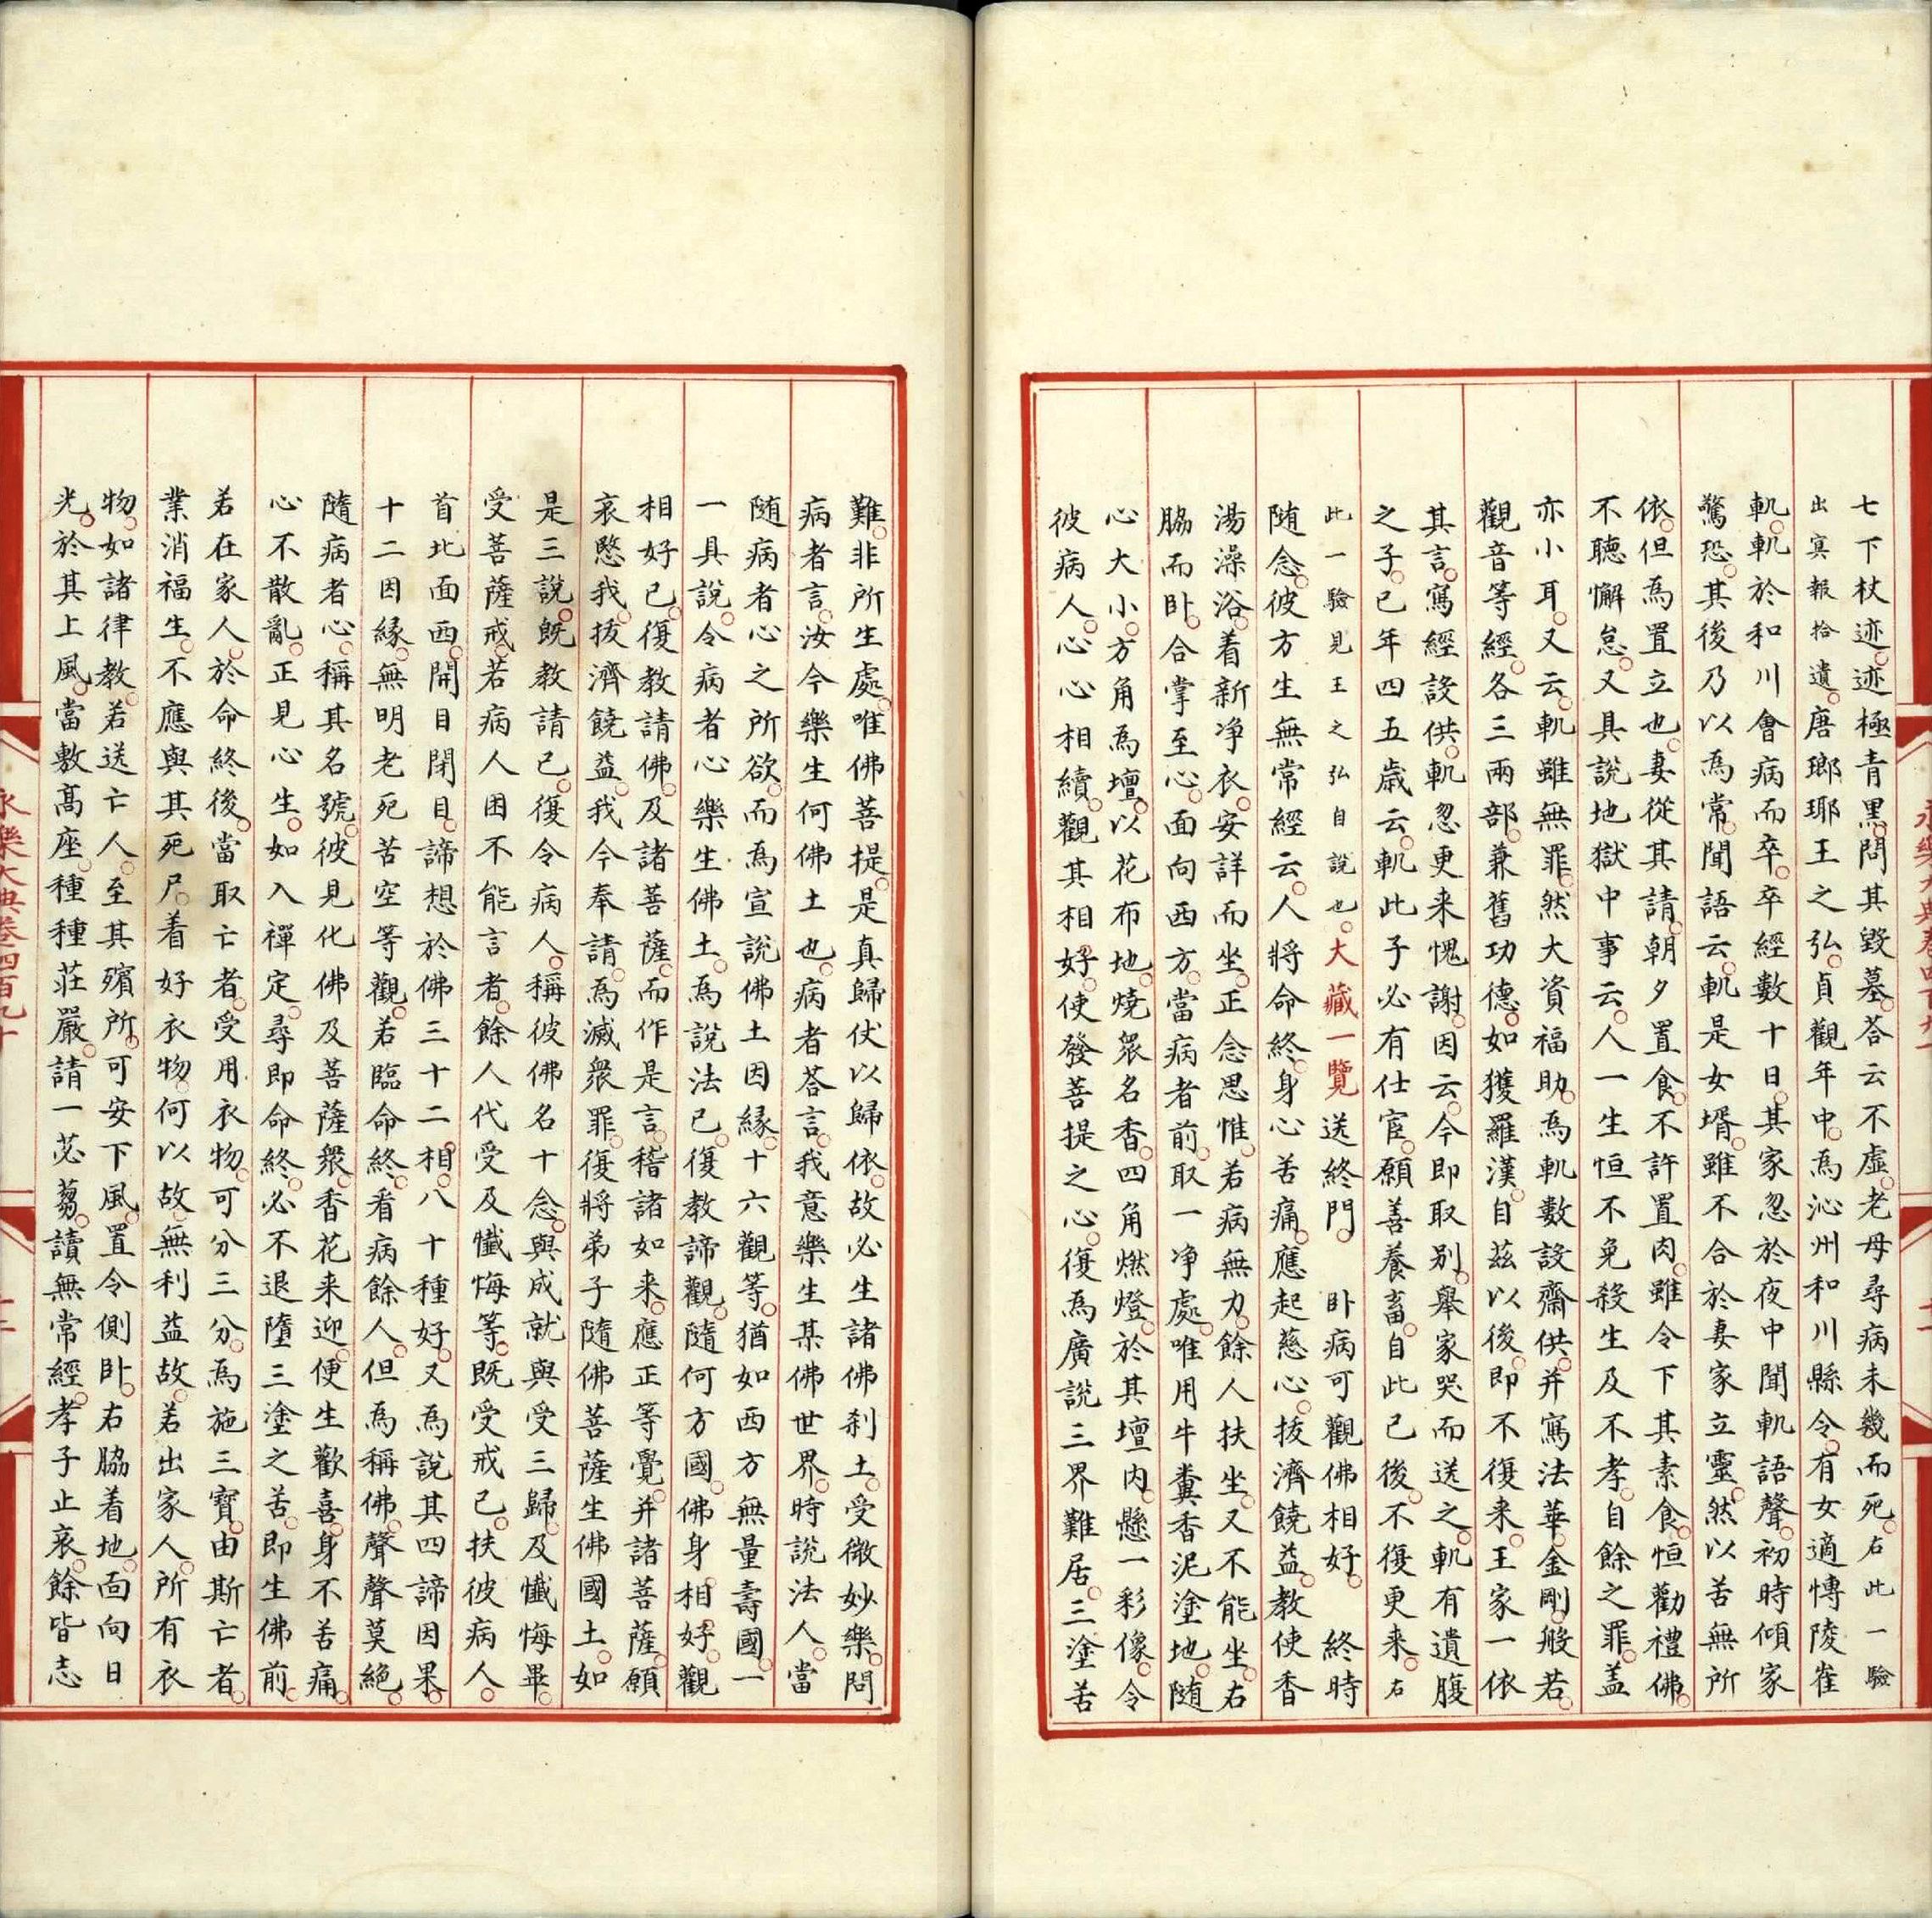 七下杖迹。迹極青黑。問其毀墓。荅云不虛。老母尋病未幾而死。右此一驗
出冥報拾遺。唐瑯耶王之弘。貞觀年中。為沁州和川縣令。有女適愽陵崔
軌。軌於和川會病而卒。卒經數十日。其家忽於夜中聞軌語聲。初時傾家
驚恐。其後乃以為常。聞語云。軌是女壻。雖不合於妻家立靈。然以苦無所
依。但為置立也。妻從其請。朝夕置食。不許置肉。雖令下其素食。恒勸禮佛。
不聽懈怠。又具說地獄中事云。人一生恒不免殺生及不孝。自餘之罪。盖
亦小耳。又云。軌雖無罪。然大資福助。為軌數設齋供。并寫法華。金剛。般若。
觀音等經。各三兩部。兼舊功德。如獲羅漢。自茲以後。即不復来。王家一依
其言。寫經設供。軌忽更来愧謝。因云。今即取别。舉家哭而送之。軌有遺腹
之子。已年四五歲云。軌此子必有仕宦。願善養畜。自此已後。不復更来。右
此一驗見王之弘自說也。大藏一覽送終門。卧病可觀佛相好。終時
随念。彼方生無常經云。人將命終。身心苦痛。應起慈心。拔濟饒益。教使香
湯澡浴。着新净衣。安詳而坐。正念思惟。若病無力。餘人扶坐。又不能坐。右
脇而卧。合掌至心。面向西方。當病者前。取一净處。唯用牛糞香泥塗地。随
心大小。方角為壇。以花布地。燒衆名香。四角燃燈。於其壇内。懸一彩像。令
彼病人。心心相續。觀其相好。使發菩提之心。復為廣說三界難居。三塗苦
難。非所生處。唯佛菩提。是真歸仗。以歸依故。必生諸佛刹土。受微妙樂。問
病者言。汝今樂生何佛土也。病者荅言。我意樂生某佛世界。時說法人。當
随病者心之所欲。而為宣說佛土因緣。十六觀等。猶如西方無量壽國。一
一具說。令病者心樂生佛土。為說法已。復教諦觀。隨何方國。佛身相好。觀
相好已。復教請佛。及諸菩薩。而作是言。稽諸如来。應正等覺。并諸菩薩。願
哀愍我。拔濟饒益。我今奉請。為滅衆罪。復將弟子隨佛菩薩生佛國土。如
是三說。既教請已。復令病人。稱彼佛名十念。與成就與受三歸。及懺悔畢。
受菩薩戒。若病人困不能言者。餘人代受及懺悔等。既受戒已。扶彼病人。
首北面西。開目閉目。諦想於佛三十二相。八十種好。又為說其四諦因果。
十二因緣。無明老死苦空等觀。若臨命終。看病餘人。但為稱佛。聲聲莫絕。
隨病者心。稱其名號。彼見化佛及菩薩衆。香花来迎。便生歡喜。身不苦痛。
心不散亂。正見心生。如入禪定。尋即命終。必不退墮三塗之苦。即生佛前。
若在家人。於命終後。當取亡者。受用衣物。可分三分。為施三寶。由斯亡者。
業消福生。不應與其死尸。着好衣物。何以故。無利益故。若出家人。所有衣
物。如諸律教。若送亡人。至其殯所。可安下風。置令側卧。右脇着地。面向日
光。於其上風。當敷髙座。種種莊嚴。請一苾蒭。讀無常經。孝子止哀。餘皆志
永樂大典卷四百九十